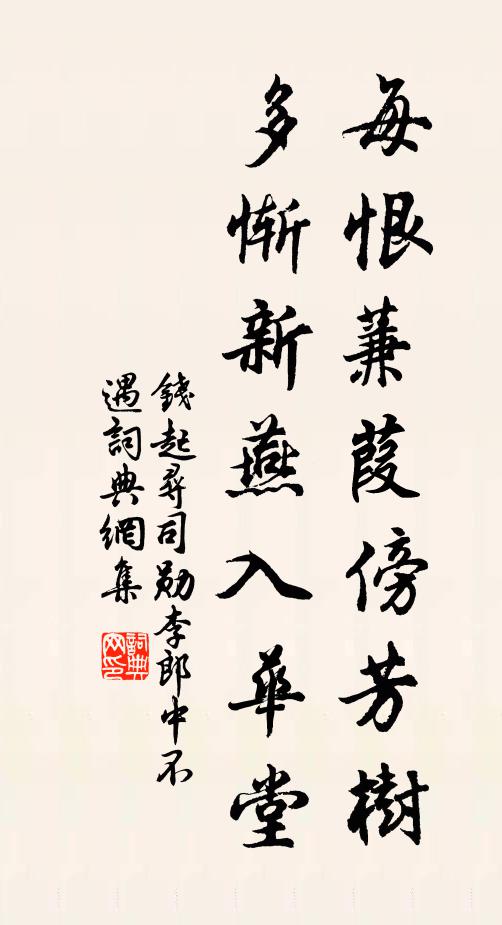 每恨蒹葭傍芳樹
多慚新燕入華堂
錢起尋司勛李郎中不
遇詞典網集
詞典
网印